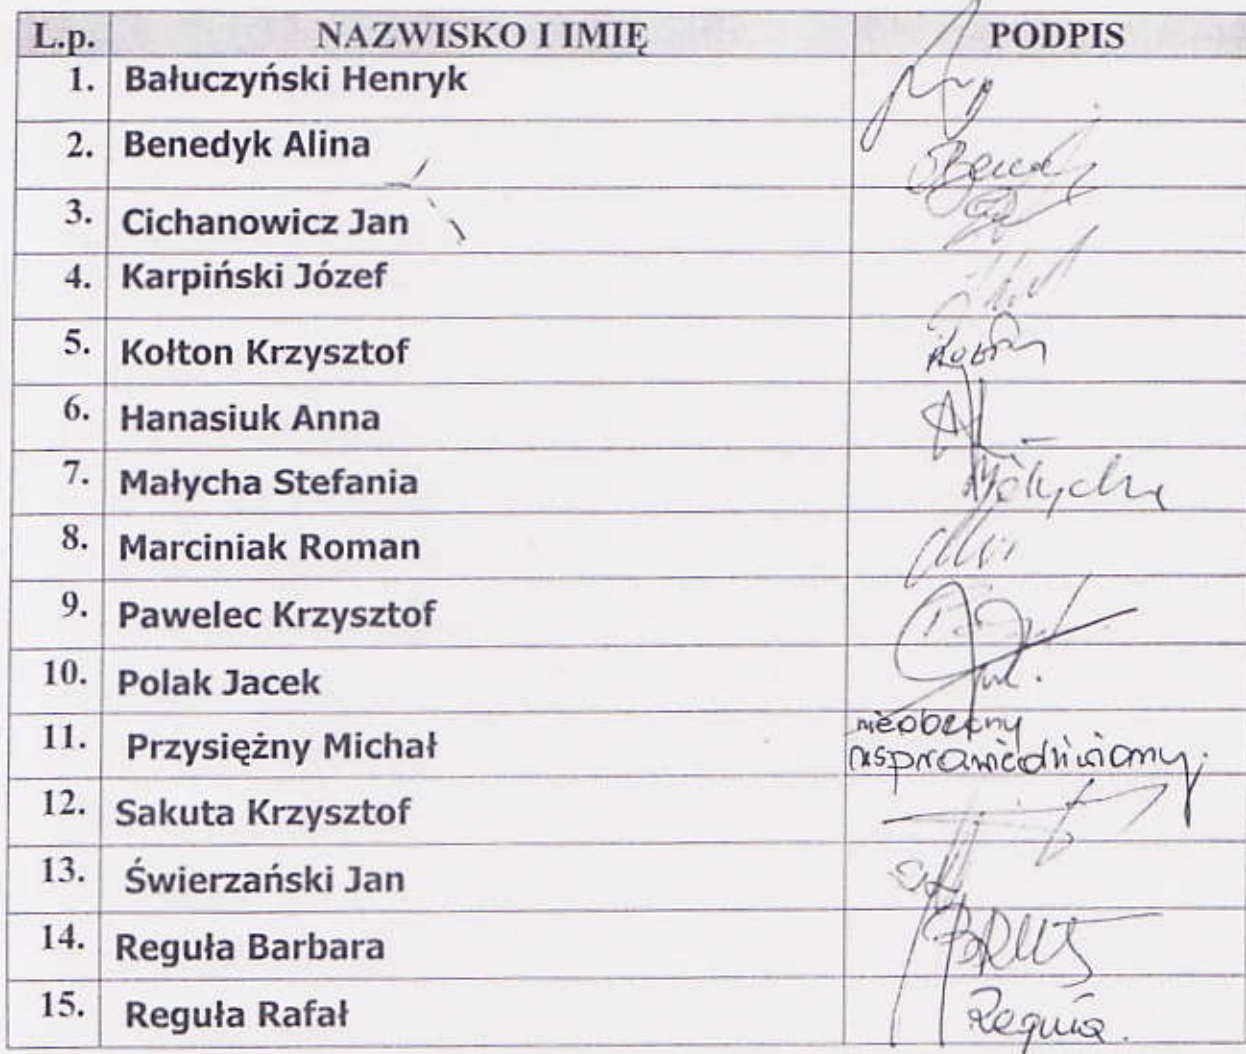 L.p. NAZWISKO I IMIĘ PODPIS
1. Bałuczyński Henryk
2. Benedyk Alina
3. Cichanowicz Jan
4. Karpiński Józef
5. Kołton Krzysztof
6. Hanasiuk Anna
7. Małycha Stefania Małycha
8. Marciniak Roman
9. Pawelec Krzysztof
10. Polak Jacek
11. Przysiężny Michał nieobecny
usprawiedliwiony.
12. Sakuta Krzysztof
13. Świerzański Jan
14. Reguła Barbara
15. Reguła Rafał Reguła